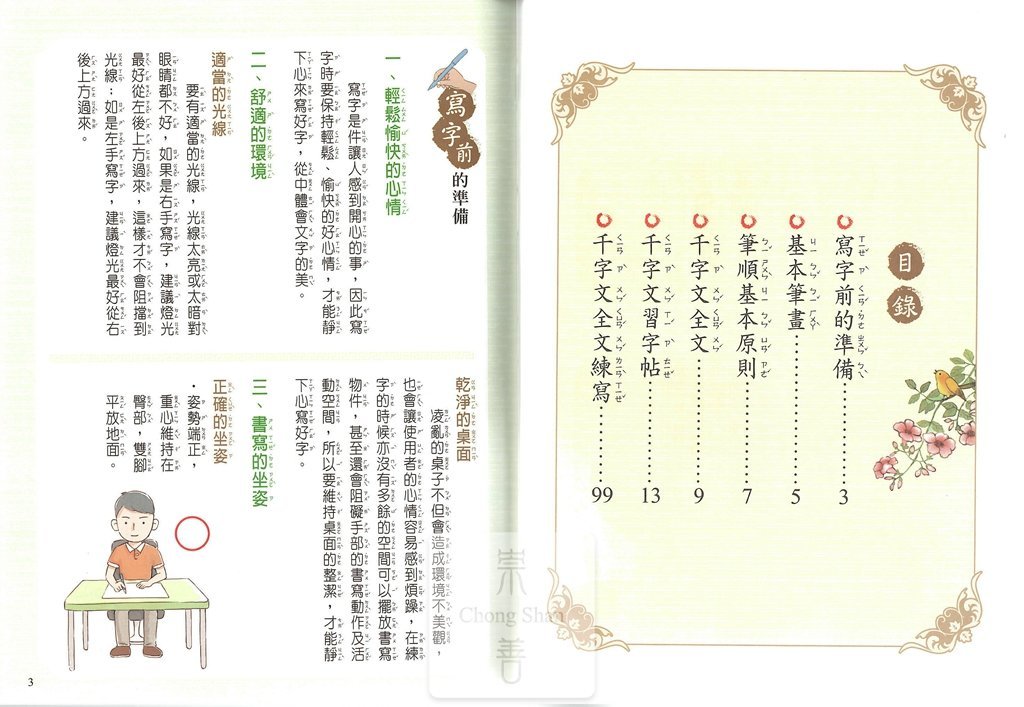 目錄
寫字前的準備……………3
基本筆畫……………5
筆順基本原則……………7
千字文全文……………9
千字文習字帖……………13
千字文全文練寫……………99
寫字前的準備
一、輕鬆愉快的心情
寫字是件讓人感到開心的事，因此寫
字時要保持輕鬆、愉快的好心情，才能靜
下心來寫好字，從中體會文字的美。
二、舒適的環境
適當的光線
要有適當的光線，光線太亮或太暗對
眼睛都不好，如果是右手寫字，建議燈光
最好從左後上方過來，這樣才不會阻擋到
光線；如是左手寫字，建議燈光最好從右
後上方過來。
乾淨的桌面
凌亂的桌子不但會造成環境不美觀，
也會讓使用者的心情容易感到煩躁，在練
字的時候亦沒有多餘的空間可以擺放書寫
物件，甚至還會阻礙手部的書寫動作及活
動空間，所以要維持桌面的整潔，才能靜
下心寫好字。
三、書寫的坐姿
正確的坐姿
・姿勢端正，
重心維持在
臀部，雙腳
平放地面。
3
崇善
Chong Shan